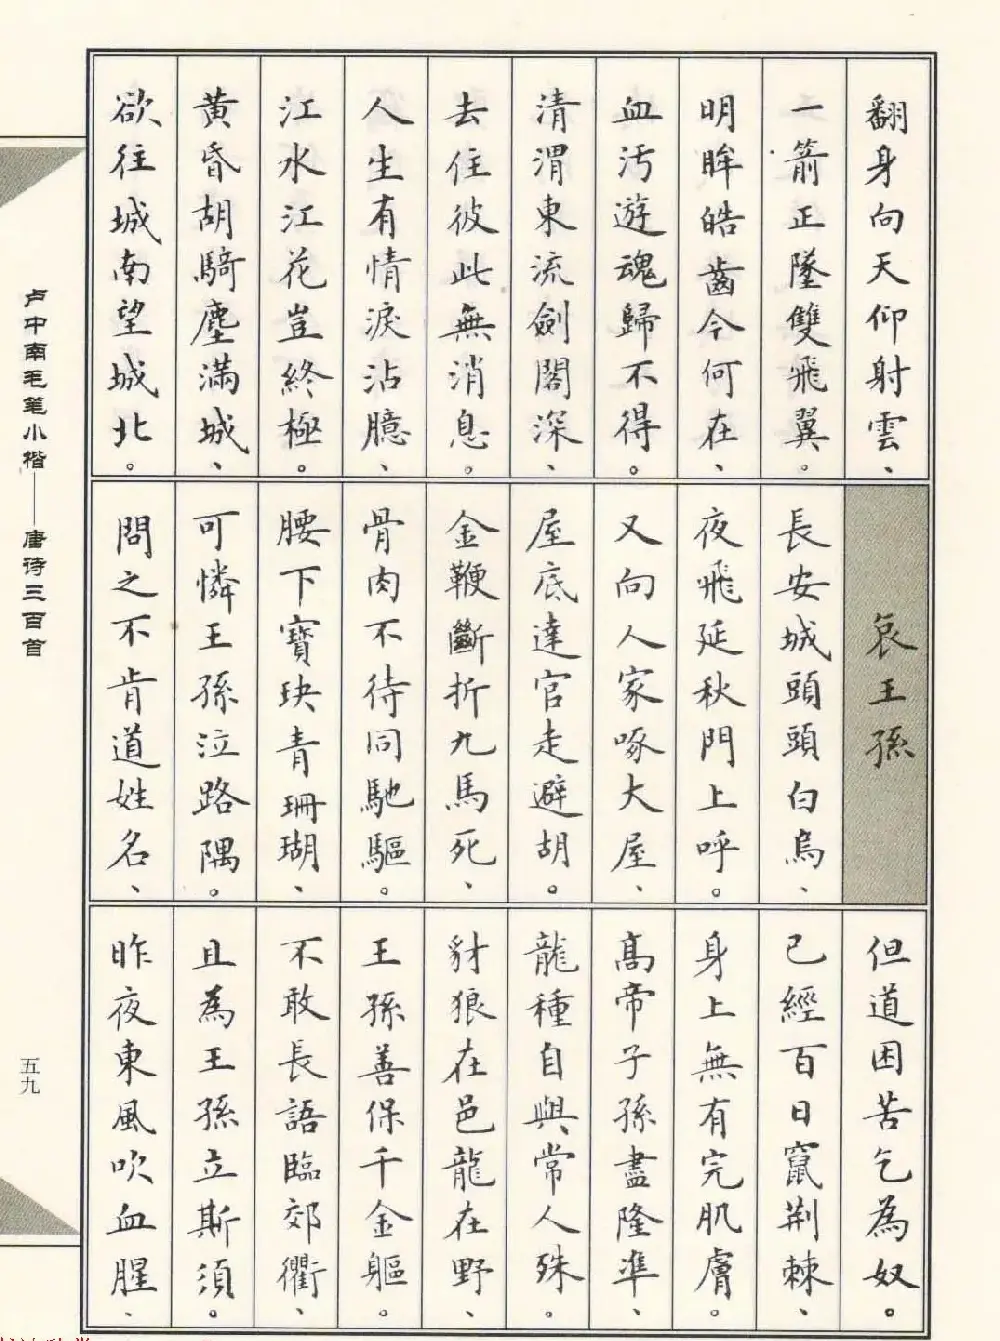 翻身向天仰射雲、
一箭正墜雙飛翼。
明眸皓齒今何在、
血污遊魂歸不得。
清渭東流劍閣深、
去住彼此無消息。
人生有情淚沾臆、
江水江花豈終極。
黃昏胡騎塵滿城、
欲往城南望城北。
哀王孫
長安城頭頭白烏、
夜飛延秋門上呼。
又向人家啄大屋、
屋底達官走避胡。
金鞭斷折九馬死、
骨肉不待同馳驅。
腰下寶玦青珊瑚、
可憐王孫泣路隅。
問之不肯道姓名、
但道困苦乞為奴。
已經百日竄荆棘、
身上無有完肌膚。
高帝子孫盡隆準、
龍種自與常人殊。
豺狼在邑龍在野、
王孫善保千金軀。
不敢長語臨郊衢、
且為王孫立斯須。
昨夜東風吹血腥、
卢中南毛笔小楷——唐诗三百首
五九